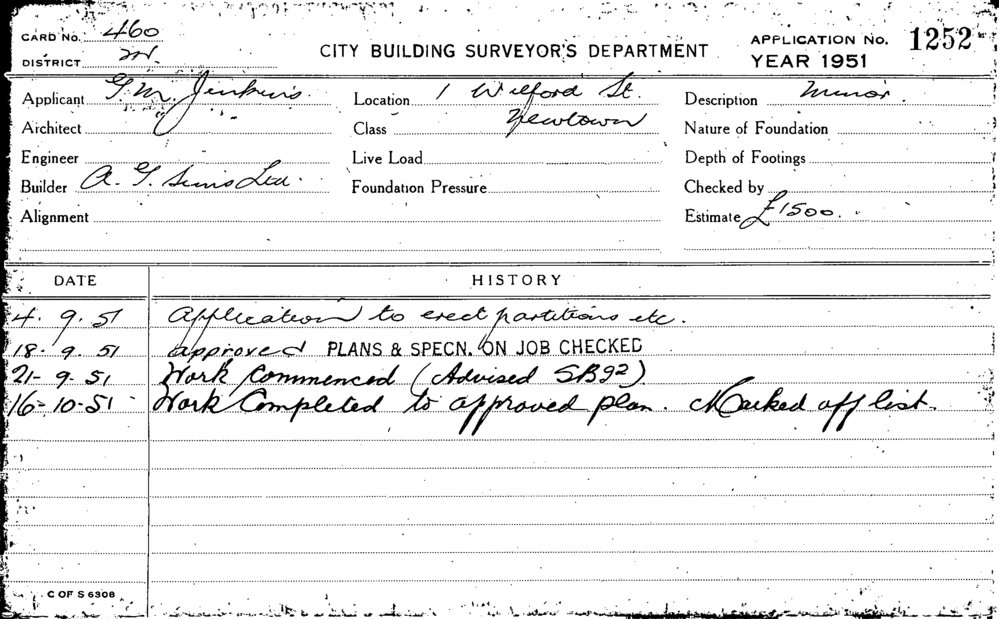 CARD No. 460
CITY BUILDING SURVEYOR'S DEPARTMENT
APPLICATION No. 1252
DISTRICT
YEAR 1951
Applicant G. M. Jenkins. Location 1 Wilford St. Newtown Description Minor.
Architect Class Nature of Foundation
Engineer Live Load Depth of Footings
Builder A. G. Sims Ltd. Foundation Pressure Checked by
Alignment Estimate £1500.
DATE HISTORY
4. 9. 51 Application to erect partitions etc.
18. 9. 51 approved PLANS & SPECN. ON JOB CHECKED
21-9.51 Work Commenced (Advised SB92)
16-10-51 Work Completed to approved plan. Marked off list.
C OF S 6308